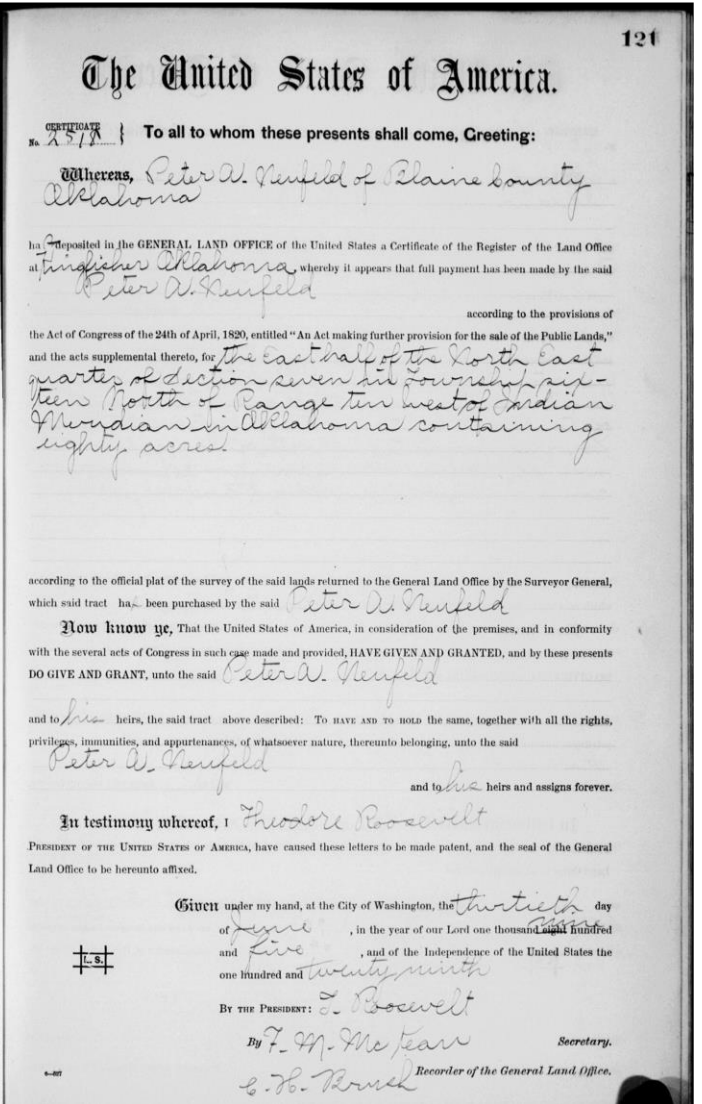 121
The United States of America.
CERTIFICATE
No. 2518 } To all to whom these presents shall come, Greeting:
Whereas, Peter A. Neufeld of Blaine County
Oklahoma
has deposited in the GENERAL LAND OFFICE of the United States a Certificate of the Register of the Land Office
at Kingfisher Oklahoma, whereby it appears that full payment has been made by the said
Peter A. Neufeld
according to the provisions of
the Act of Congress of the 24th of April, 1820, entitled "An Act making further provision for the sale of the Public Lands,"
and the acts supplemental thereto, for the East half of the North East
quarter of Section seven in Township six-
teen North of Range ten west of Indian
Meridian in Oklahoma containing
eighty acres.
according to the official plat of the survey of the said lands returned to the General Land Office by the Surveyor General,
which said tract has been purchased by the said Peter A. Neufeld
Now know ye, That the United States of America, in consideration of the premises, and in conformity
with the several acts of Congress in such case made and provided, HAVE GIVEN AND GRANTED, and by these presents
DO GIVE AND GRANT, unto the said Peter A. Neufeld
and to his heirs, the said tract above described: TO HAVE AND TO HOLD the same, together with all the rights,
privileges, immunities, and appurtenances, of whatsoever nature, thereunto belonging, unto the said
Peter A. Neufeld
and to his heirs and assigns forever.
In testimony whereof, I Theodore Roosevelt
PRESIDENT OF THE UNITED STATES OF AMERICA, have caused these letters to be made patent, and the seal of the General
Land Office to be hereunto affixed.
Given under my hand, at the City of Washington, the thirtieth day
of June, in the year of our Lord one thousand eight nine hundred
and five, and of the Independence of the United States the
one hundred and twenty ninth
L. S.
BY THE PRESIDENT: T. Roosevelt
By F. M. McKean Secretary.
C. H. Brush Recorder of the General Land Office.